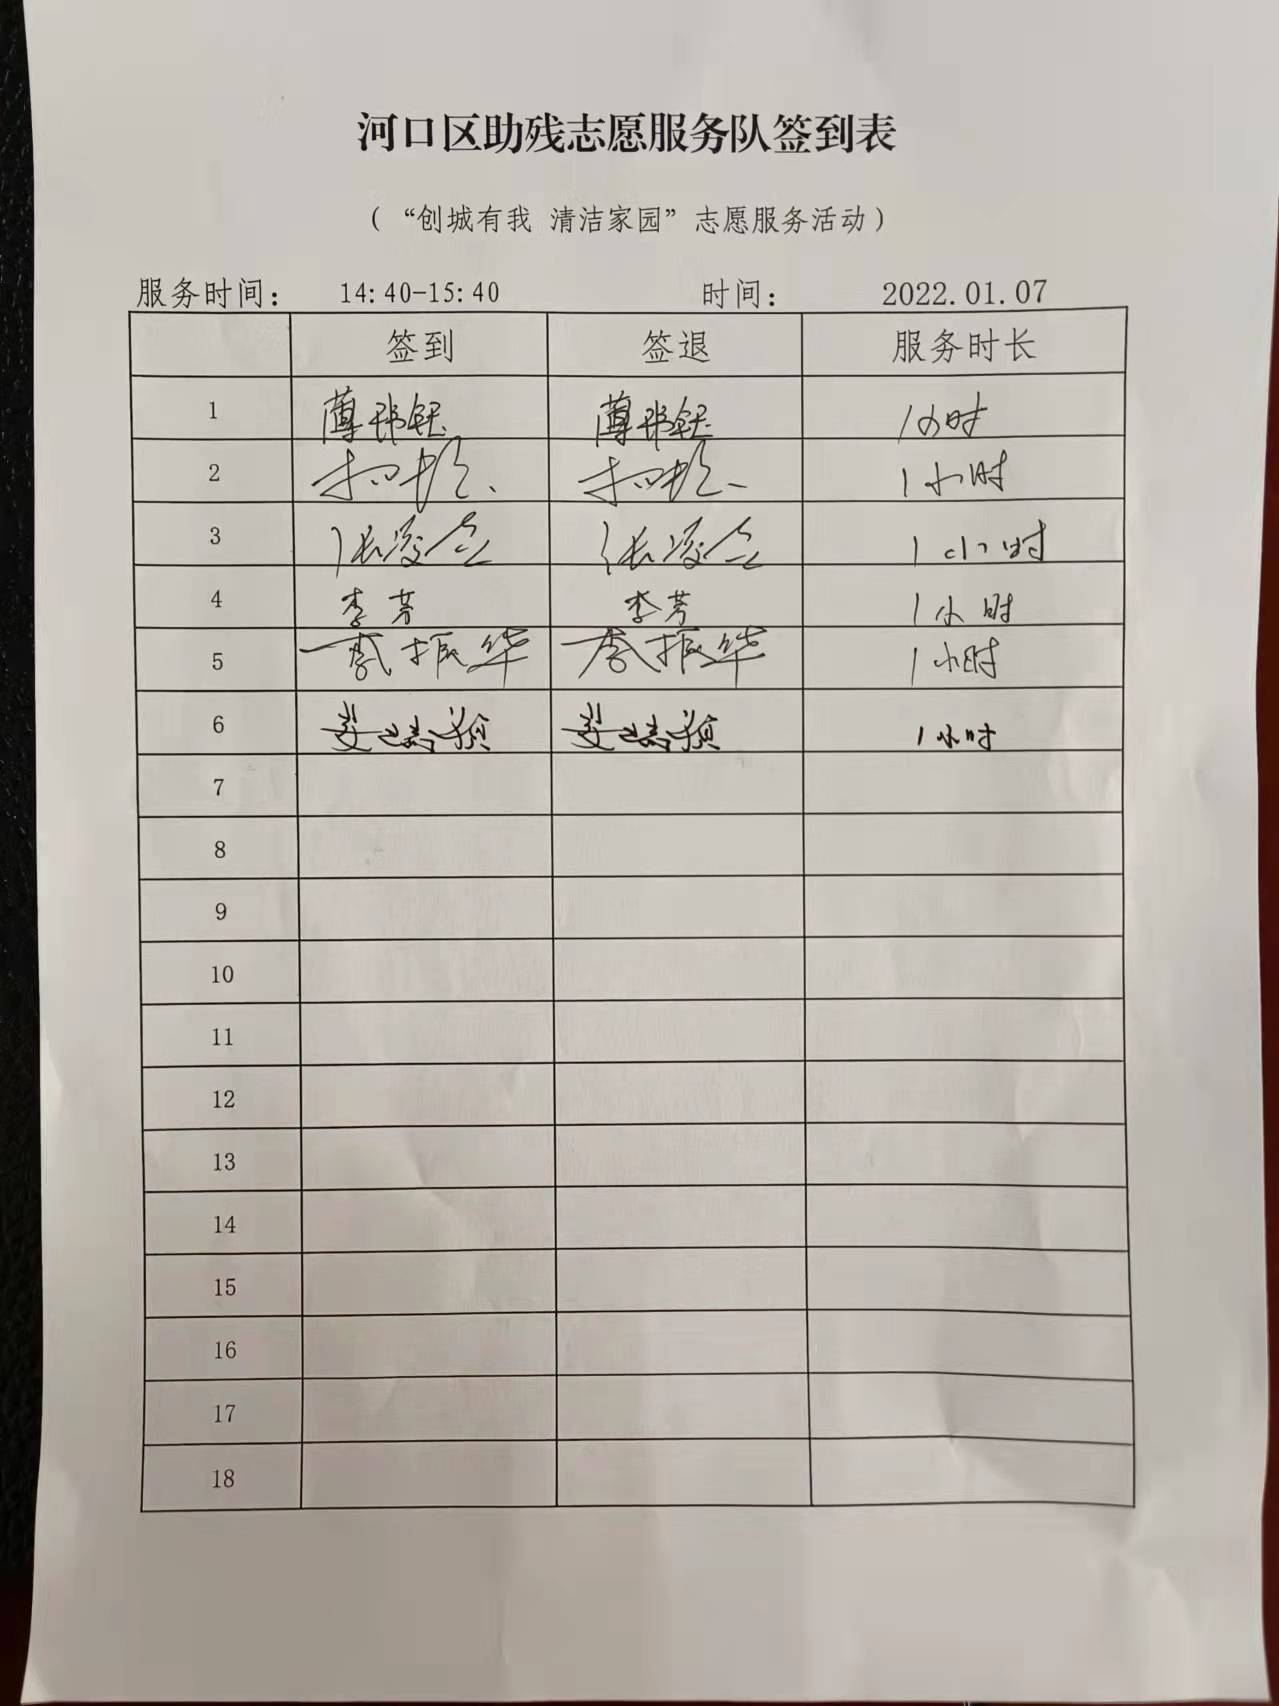 河口区助残志愿服务队签到表
（“创城有我 清洁家园”志愿服务活动）
服务时间： 14:40-15:40 时间： 2022.01.07
签到 签退 服务时长
1 1小时
2 1小时
3 1小时
4 李芳 李芳 1小时
5 李振华 李振华 1小时
6 1小时
7
8
9
10
11
12
13
14
15
16
17
18